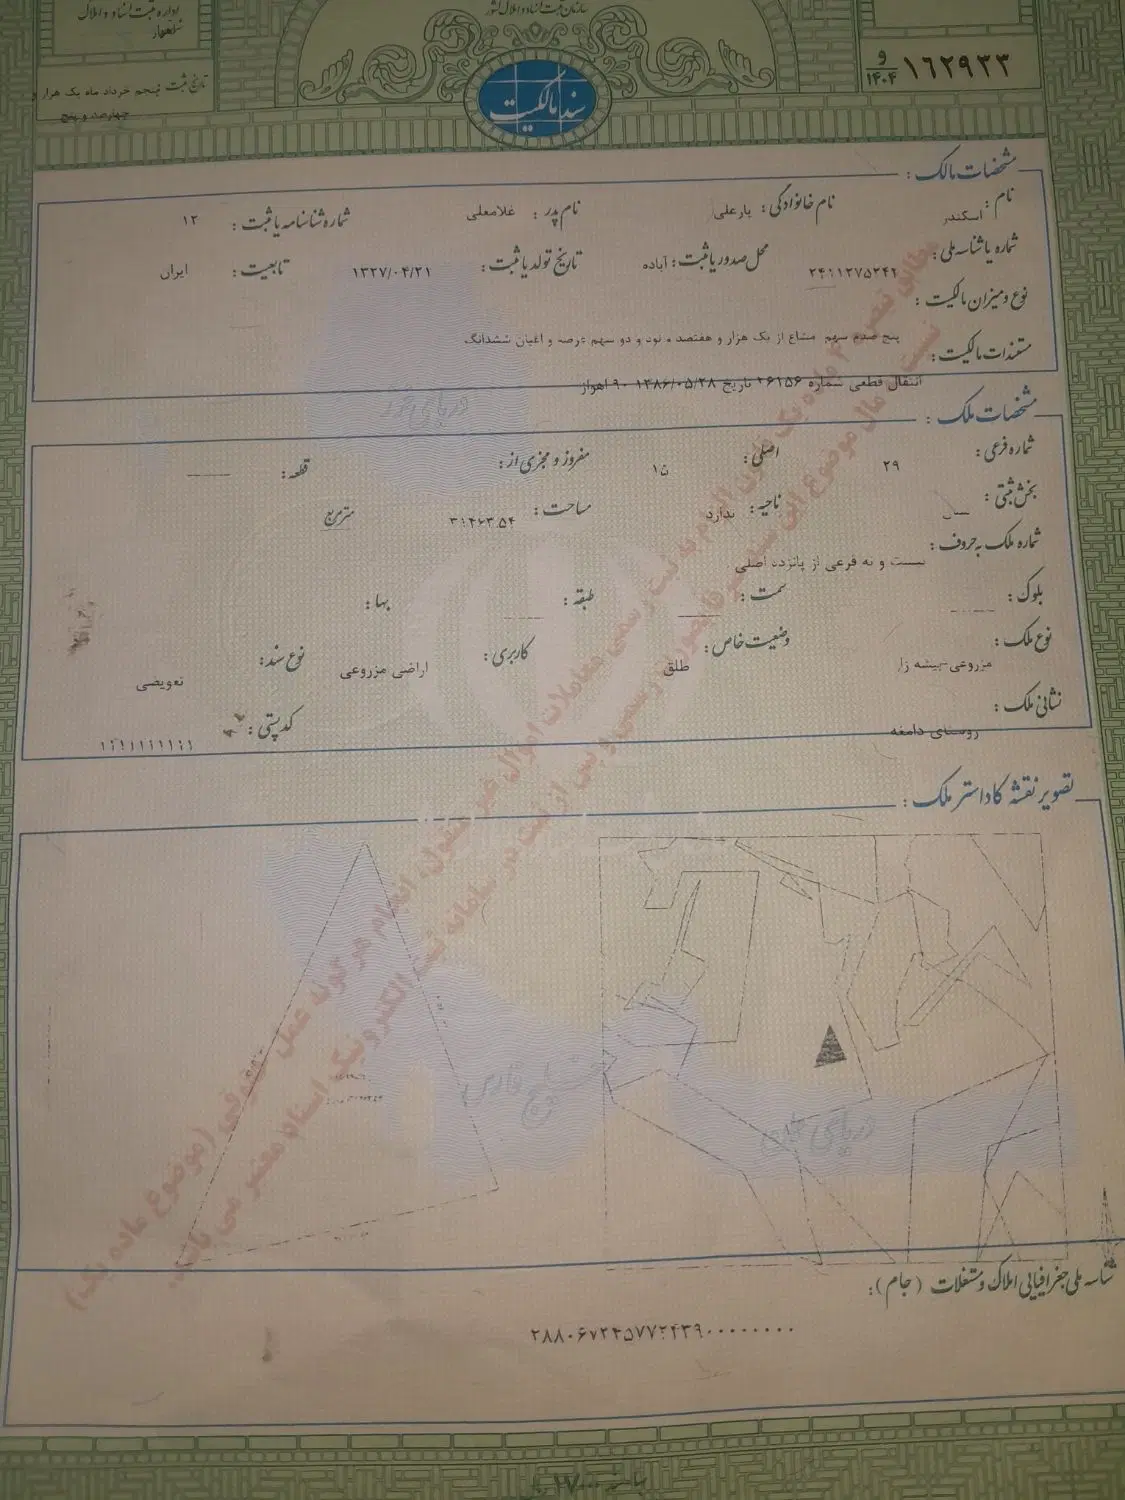 سازمان ثبت اسناد و املاک کشور
اداره ثبت اسناد و املاک
۱۶۲۹۳۳ و ۱۴۰۴
تاریخ ثبت پنجم خرداد ماه یک هزار و
چهارصد و پنج
سند مالکیت
مشخصات مالک :
نام : اسکندر نام خانوادگی : یارعلی نام پدر : غلامعلی شماره شناسنامه یا ثبت : ۱۲
شماره یا شناسه ملی : محل صدور یا ثبت : آباده تاریخ تولد یا ثبت : ۱۳۲۷/۰۴/۲۱ تابعیت : ایران
نوع و میزان مالکیت :
پنج صدم سهم مشاع از یک هزار و هفتصد و نود و دو سهم عرصه و اعیان ششدانگ
مستندات مالکیت :
انتقال قطعی شماره ۲۶۱۵۶ تاریخ ۱۳۸۶/۰۵/۲۸ ۹۰ اهواز
مشخصات ملک :
شماره فرعی : ۲۹ اصلی : ۱۵ مفروز و مجزی از : قطعه :
بخش ثبتی : ناحیه : ندارد مساحت : ۳۱۴۶۳.۵۴ مترمربع
شماره ملک به حروف : بیست و نه فرعی از پانزده اصلی
بلوک : سمت : طبقه : بها :
نوع ملک : مزروعی-بیشه زار وضعیت خاص : طلق کاربری : اراضی مزروعی نوع سند : تعویضی
نشانی ملک : روستای دامغه کدپستی : ۱۱۱۱۱۱۱۱۱۱
تصویر نقشه کاداستر ملک :
دریای خزر
خلیج فارس
دریای عمان
مطابق تبصره ۴ ماده یک قانون الزام به ثبت رسمی معاملات اموال غیر منقول، انجام هر گونه عمل حقوقی (موضوع ماده یک)
نسبت به مال موضوع این سند صرفا بصورت رسمی و پس از ثبت در سامانه ثبت الکترونیک اسناد معتبر می باشد.
شناسه ملی جغرافیایی املاک و مستغلات (جام) :
۲۸۸۰۶۷۲۴۵۷۷۲۴۳۹۰۰۰۰۰۰۰۰